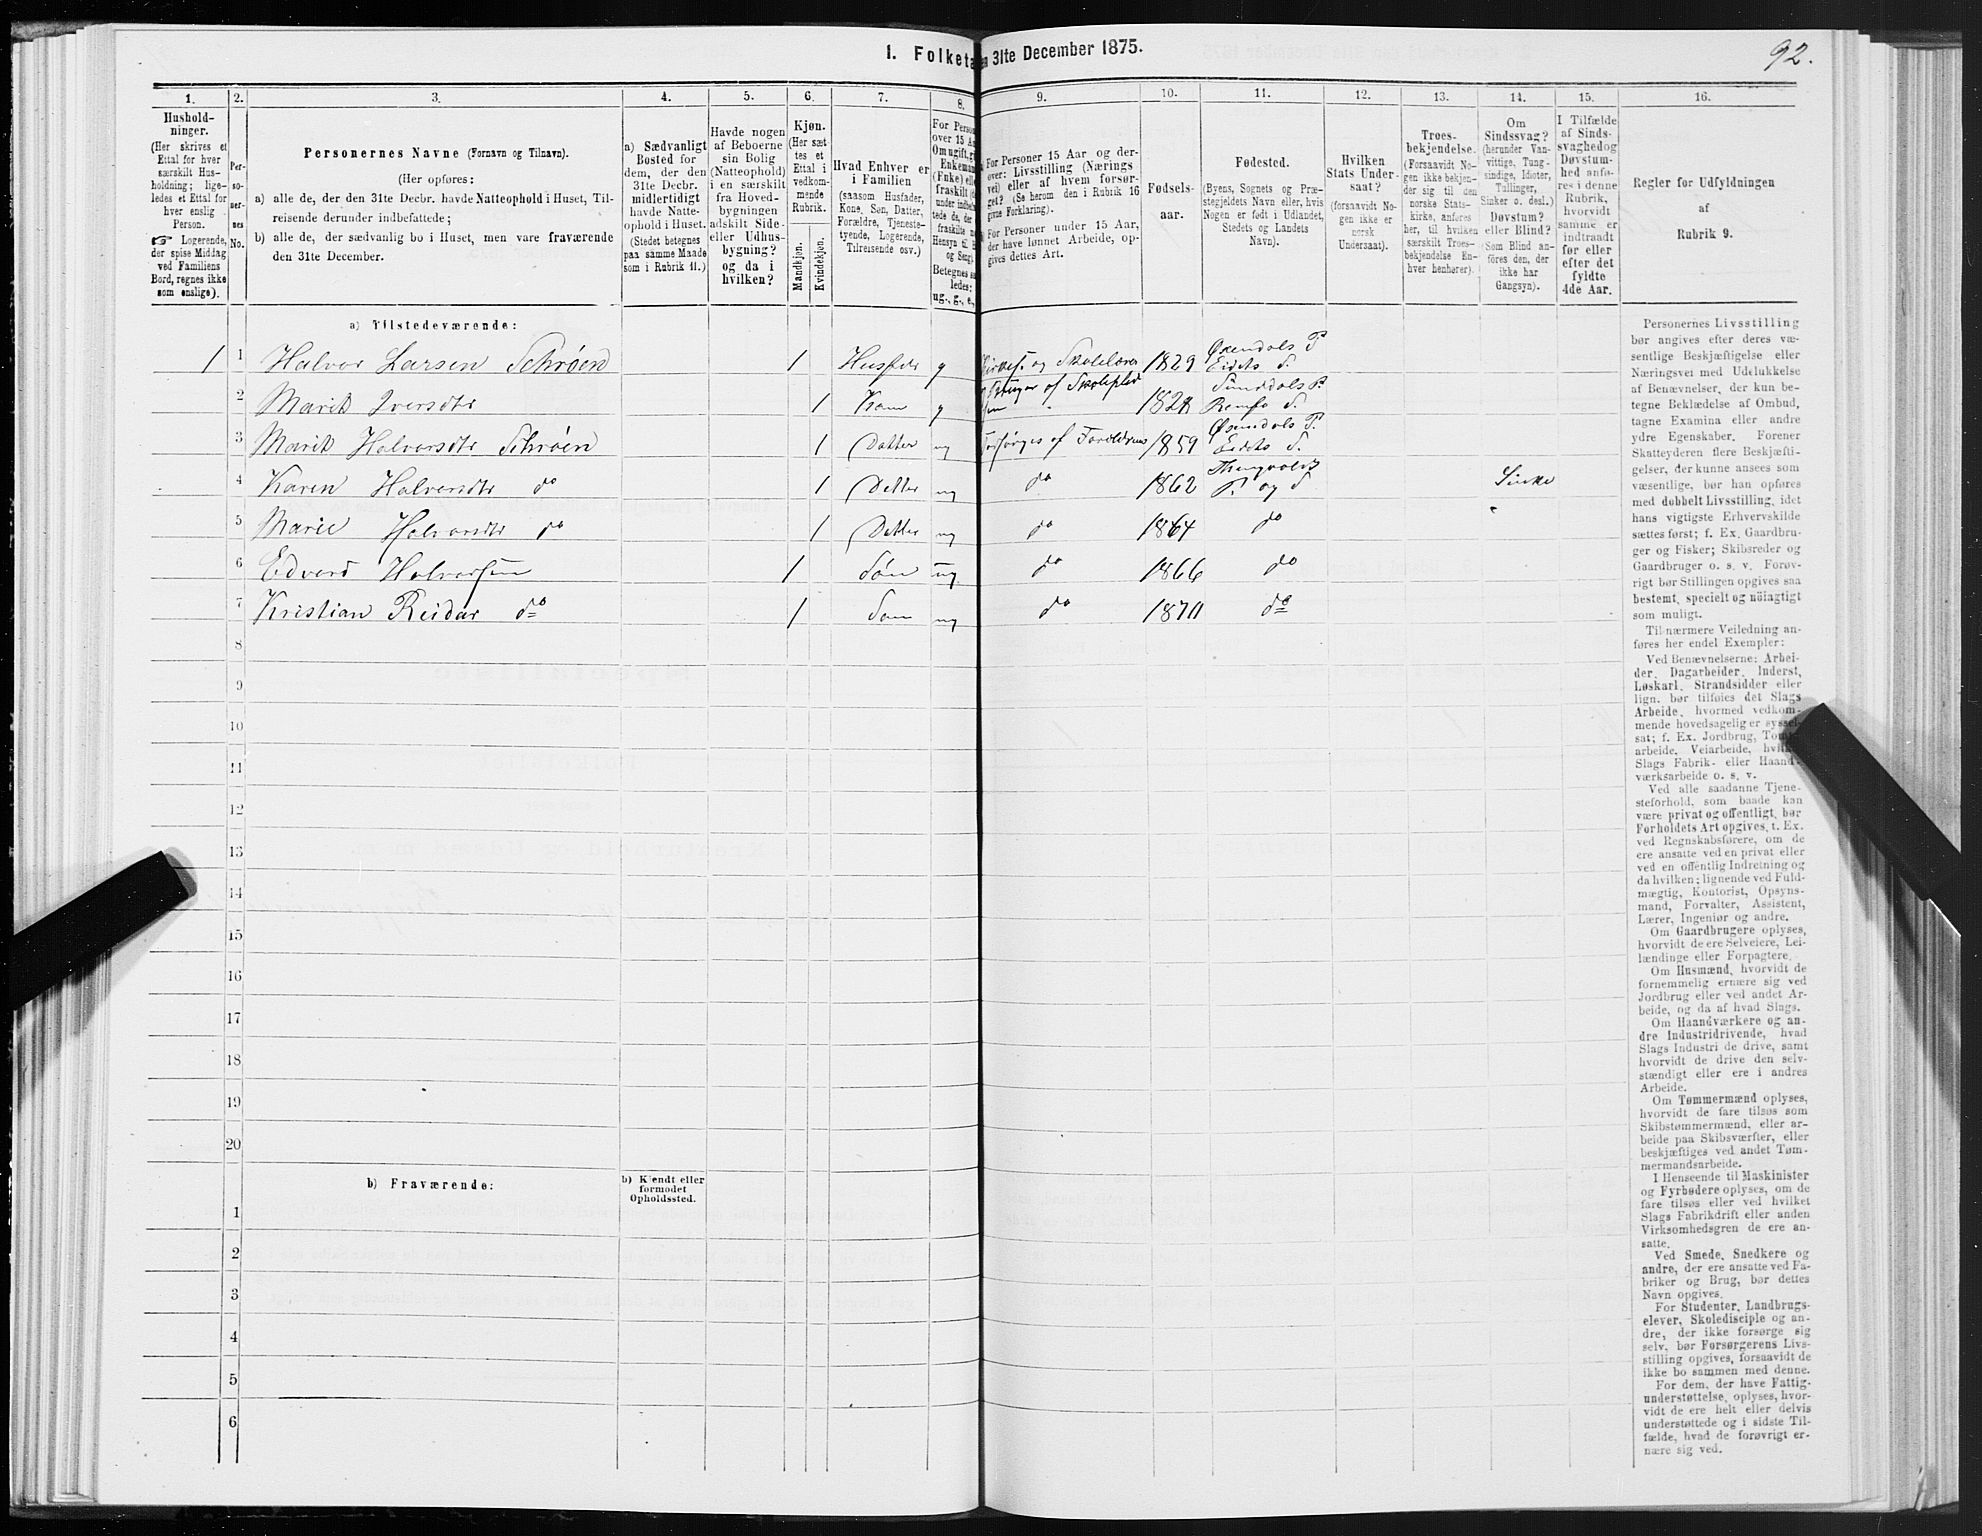 92.
1. Folketa
en 31te December 1875.
1.
2.
3.
4.
5.
6.
7.
8.
9.
10.
11.
12.
13.
14.
15.
16.
Hushold-
ninger.
(Her skrives et
Ettal for hver
særskilt Hus-
holdning; lige-
ledes et Ettal for
hver enslig
Person.
☞ Logerende,
der spise Middag
ved Familiens
Bord, regnes ikke
som enslige).
Per-
so-
ner-
nes
No.
Personernes Navne (Fornavn og Tilnavn).
(Her opføres:
a) alle de, der den 31te Decbr. havde Natteophold i Huset, Til-
reisende derunder indbefattede;
b) alle de, der sædvanlig bo i Huset, men vare fraværende
den 31te December.
a) Sædvanligt
Bosted for
dem, der den
31te Decbr.
midlertidigt
havde Natte-
ophold i Huset.
(Stedet betegnes
paa samme Maade
som i Rubrik 11.)
Havde nogen
af Beboerne
sin Bolig
(Natteophold)
i en særskilt
fra Hoved-
bygningen
adskilt Side-
eller Udhus-
bygning?
og da i
hvilken?
Kjøn.
(Her sæt-
tes et
Ettal i
vedkom-
mende
Rubrik.
Mandkjøn.
Kvindekjøn.
Hvad Enhver er
i Familien
(saasom Husfader,
Kone, Søn, Datter,
Forældre, Tjeneste-
tyende, Logerende,
Tilreisende osv.).
For Person
over 15 Aa
Om ugift, gi
Enkeman
(Enke) elle
fraskilt (d
under indbe
tede de, der
fraskilte m
Hensyn til B
og Seng).
Betegnes sa
ledes:
ug., g., e.,
For Personer 15 Aar og der-
over: Livsstilling (Nærings
vei) eller af hvem forsør-
get? (Se herom den i Rubrik 16
givne Forklaring).
For Personer under 15 Aar,
der have lønnet Arbeide, op-
gives dettes Art.
Fødsels-
aar.
Fødested.
(Byens, Sognets og Præ-
stegjeldets Navn eller, hvis
Nogen er født i Udlandet,
Stedets og Landets
Navn).
Hvilken
Stats Under-
saat?
(forsaavidt No-
gen ikke er
norsk
Undersaat).
Troes-
bekjendelse.
(Forsaavidt No-
gen ikke bekjen-
der sig til den
norske Stats-
kirke, anføres
her, til hvilken
særskilt Troes-
bekjendelse En-
hver henhører).
Om
Sindssvag?
(herunder Van-
vittige, Tung-
sindige, Idioter,
Tullinger,
Sinker o. desl.)
Døvstum?
eller Blind?
(Som Blind an-
føres den, der
ikke har
Gangsyn).
I Tilfælde
af Sinds-
svaghed og
Døvstum-
hed anfø-
res i denne
Rubrik,
hvorvidt
samme er
indtraadt
før eller
efter det
fyldte
4de Aar.
Regler for Udfyldningen
af
Rubrik 9.
a) Tilstedeværende:
1 1 Halvor Larsen Schrøen 1 Husfader g og Skolelærer 1829 Øxendals P. Eidets S.
2 Marit Iversdtr 1 Kone g 182 Sunddals P. Romfo S.
3 Marit Halvorsdtr Schrøen 1 Datter ug Forsørges af Forældrene 1859 Øxendals P. Eidets S.
4 Karen Halvorsdtr do 1 Datter ug do 1862 Thingvolds P. og S. Sinke
5 Marie Halvorsdtr do 1 Datter ug do 1864 do
6 Edvard Halvorsen 1 Søn ug. do 1866 do
7 Kristian Reidar do 1 Søn ug do 1870 do
8
9
10
11
12
13
14
15
16
17
18
19
20
b) Fraværende:
b) Kjendt eller
formodet
Opholdssted.
1
2
3
4
5
6
Personernes Livsstilling
bør angives efter deres væ-
sentlige Beskjæftigelse eller
Næringsvei med Udelukkelse
af Benævnelser, der kun be-
tegne Beklædelse af Ombud,
tagne Examina eller andre
ydre Egenskaber. Forener
Skatteyderen flere Beskjæfti-
gelser, der kunne ansees som
væsentlige, bør han opføres
med dobbelt Livsstilling, idet
hans vigtigste Erhvervskilde
sættes først; f. Ex. Gaardbru-
ger og Fisker; Skibsreder og
Gaardbruger o. s. v. Forøv-
rigt bør Stillingen opgives saa
bestemt, specielt og nöiagtigt
som muligt.
Til nærmere Veiledning an-
føres her endel Exempler:
Ved Benævnelserne: Arbei-
der, Dagarbeider, Inderst,
Løskarl, Strandsidder eller
lign. bør tilføies det Slags
Arbeide, hvormed vedkom-
mende hovedsagelig er syssel-
sat; f. Ex. Jordbrug, Tomt-
arbeide, Veiarbeide, hvilket
Slags Fabrik- eller Haand-
værksarbeide o. s. v.
Ved alle saadanne Tjene-
steforhold, som baade kan
være privat og offentligt, bør
Forholdets Art opgives, t. Ex.
ved Regnskabsførere, om de
ere ansatte ved en privat eller
ved en offentlig Indretning og
da hvilken; lignende ved Fuld-
mægtig, Kontorist, Opsyns-
mand, Forvalter, Assistent,
Lærer, Ingeniør og andre.
Om Gaardbrugere oplyses,
hvorvidt de ere Selveiere, Lei-
lændinge eller Forpagtere.
Om Husmænd, hvorvidt de
fornemmelig ernære sig ved
Jordbrug eller ved andet Ar-
beide, og da af hvad Slags.
Om Haandværkere og an-
dre Industridrivende, hvad
Slags Industri de drive, samt
hvorvidt de drive den selv-
stændigt eller ere i andres
Arbeide.
Om Tømmermænd oplyses,
hvorvidt de fare tilsøs som
Skibstømmermænd, eller ar-
beide paa Skibsværfter, eller
beskjæftiges ved andet Tøm-
mermandsarbeide.
I Henseende til Maskinister
og Fyrbødere oplyses, om de
fare tilsøs eller ved hvilket
Slags Fabrikdrift eller anden
Virksomhedsgren de ere an-
satte.
Ved Smede, Snedkere og
andre, der ere ansatte ved Fa-
briker og Brug, bør dettes
Navn opgives.
For Studenter, Landbrugs-
elever, Skoledisciple og an-
dre, der ikke forsørge sig
selv, bør Forsørgerens Livs-
stilling opgives, forsaavidt de
ikke bo sammen med denne.
For dem, der have Fattig-
understøttelse, oplyses, hvor-
vidt de ere helt eller delvis
understøttede og i sidste Til-
fælde, hvad de forøvrigt er-
nære sig ved.